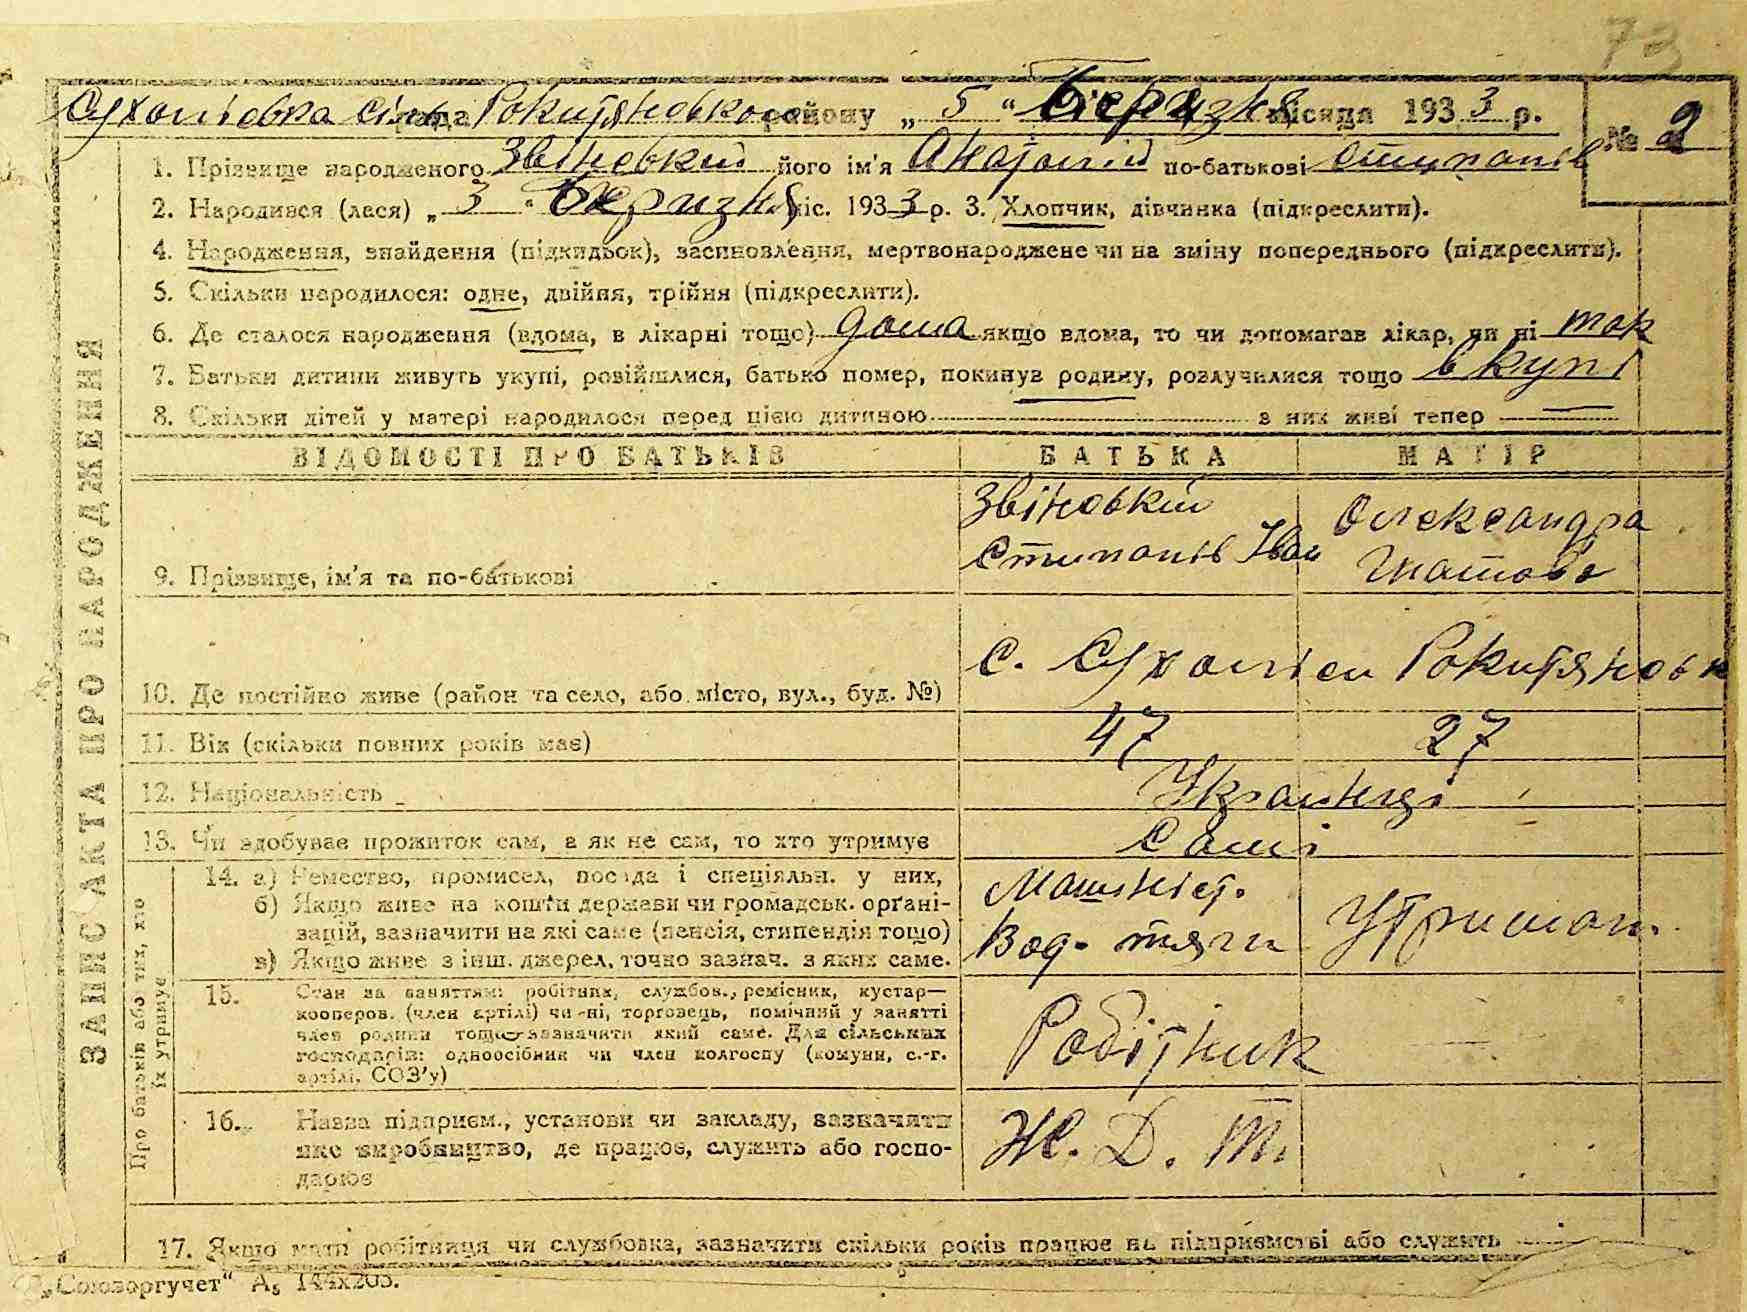 73
Сухоліска сіль рада Рокитяновького району „ 5 “ Березня місяця 1933 р.
№ 2
1. Прізвище народженого Звіновький його ім'я Анатолій по-батькові
2. Народився (лася) „ 3 “ Беризня міс. 1933 р. 3. Хлопчик, дівчинка (підкреслити).
4. Народження, знайдення (підкидьок), засиновлення, мертвонароджене чи на зміну попереднього (підкреслити).
5. Скільки народилося: одне, двійня, трійня (підкреслити).
6. Де сталося народження (вдома, в лікарні тощо) дома якщо вдома, то чи допомагав лікар, чи ні так
7. Батьки дитини живуть укупі, розійшлися, батько помер, покинув родину, розлучилися тощо вкупі
8. Скільки дітей у матері народилося перед цією дитиною — з них живі тепер —
ЗАПИС АКТА ПРО НАРОДЖЕННЯ
ВІДОМОСТІ ПРО БАТЬКІВ БАТЬКА МАТІР
9. Прізвище, ім'я та по-батькові Звіновькій Олександра
10. Де постійно живе (район та село, або місто, вул., буд. №) с. Рокитяновьк
11. Вік (скільки повних років має) 47 27
12. Національність Українці
13. Чи здобуває прожиток сам, а як не сам, то хто утримує Самі
Про батьків або тих, хто їх утримує
14. а) Ремество, промисел, посада і спеціяльн. у них, Машініст.
б) Якщо живе на кошти держави чи громадськ. органі- Вод. тяги Утриман.
зацій, зазначити на які саме (пенсія, стипендія тощо)
в) Якщо живе з інш. джерел, точно зазнач. з яких саме.
15. Стан за заняттям: робітник, службов., ремісник, кустар—
кооперов. (член артілі) чи ні, торговець, помічний у занятті
член родини тощо—зазначити який саме. Для сільських Робітник —
господарів: одноосібник чи член колгоспу (комуни, с.-г.
артілі, СОЗ'у)
16. Назва підприєм., установи чи закладу, зазначити
яке виробництво, де працює, служить або госпо- Ж. Д. Т.
дарює
17. Якщо мати робітниця чи службовка, зазначити скільки років працює на підприємстві або служить
„Союзоргучет“ А₅ 144х203.